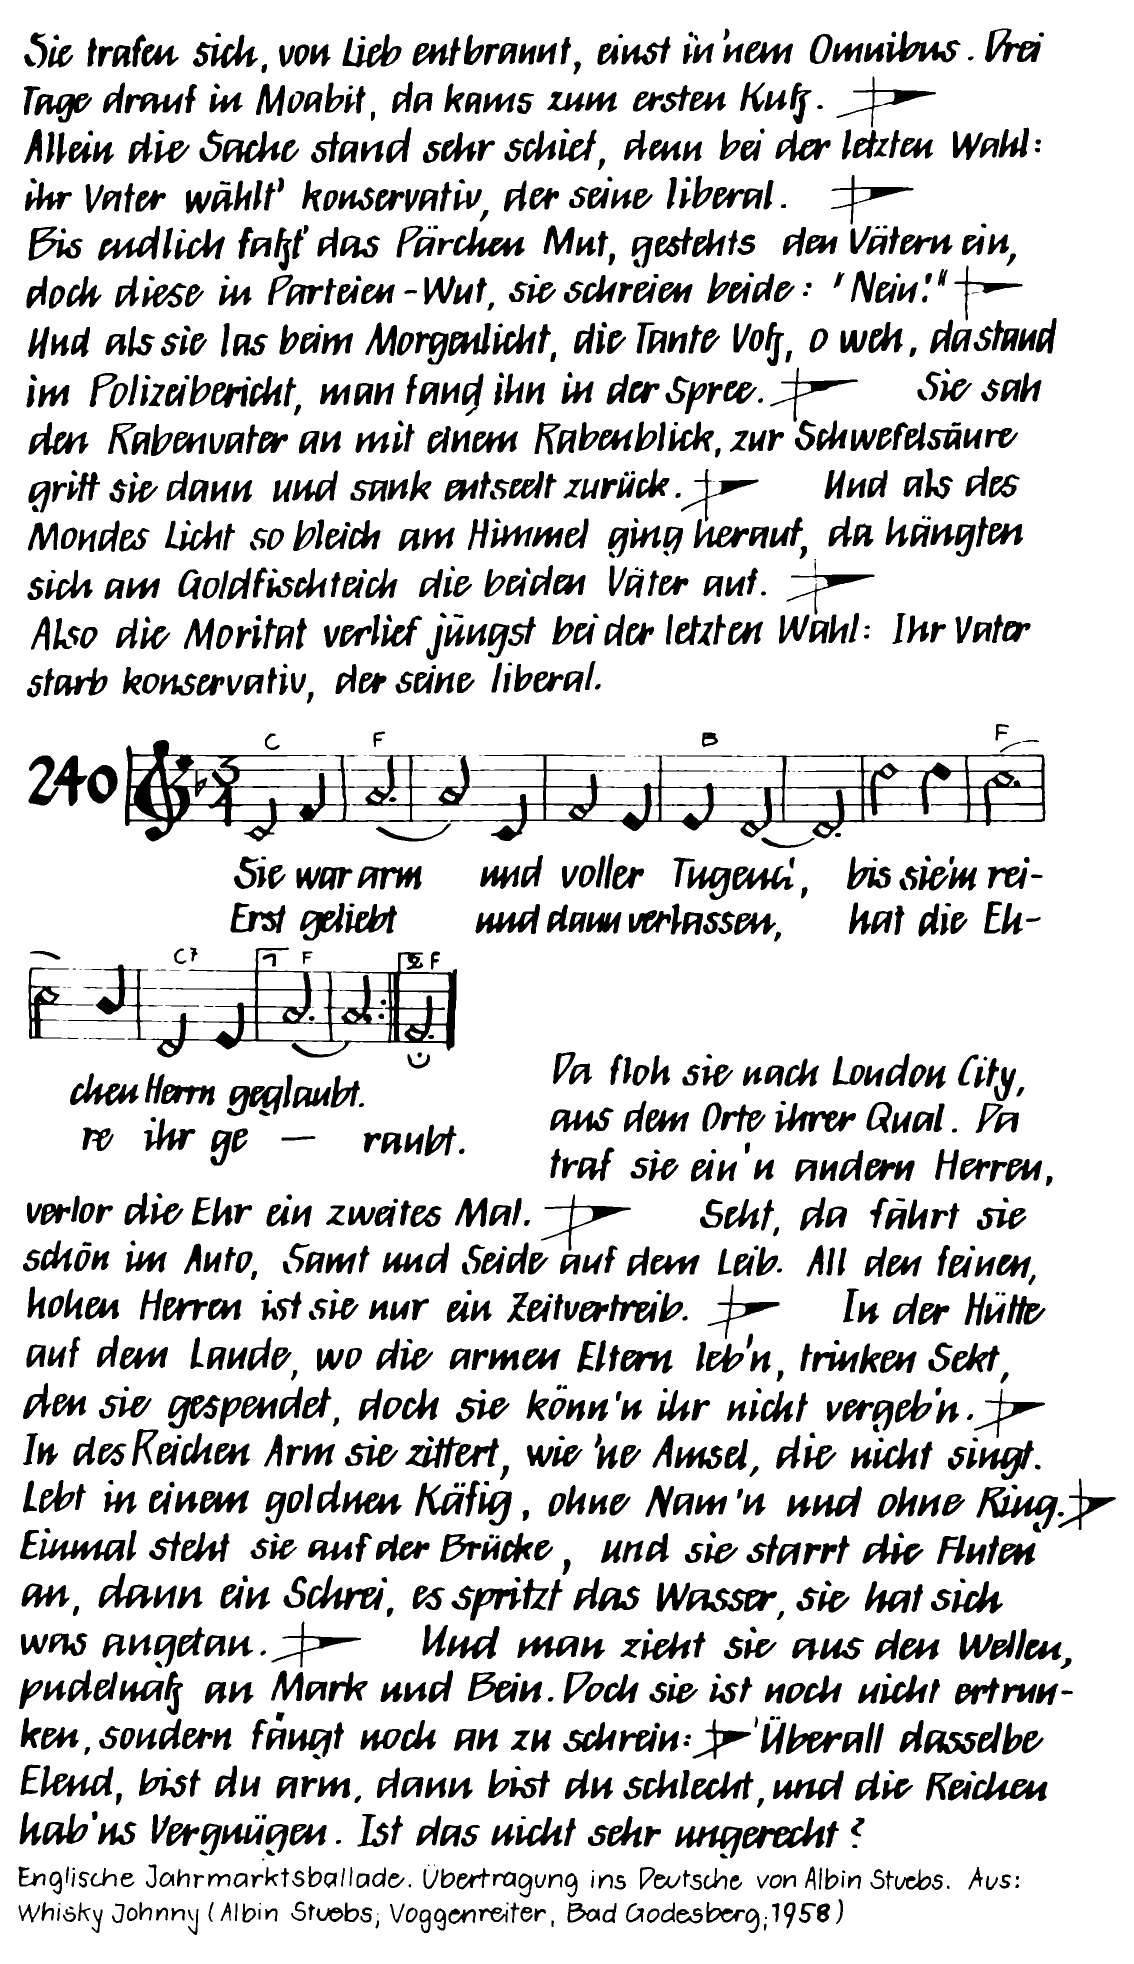 Sie trafen sich, von Lieb entbrannt, einst in'nem Omnibus. Drei
Tage drauf in Moabit, da kams zum ersten Kuß.
Allein die Sache stand sehr schief, denn bei der letzten Wahl:
ihr Vater wählt' konservativ, der seine liberal.
Bis endlich faßt' das Pärchen Mut, gestehts den Vätern ein,
doch diese in Parteien-Wut, sie schreien beide: "Nein!"
Und als sie las beim Morgenlicht, die Tante Voß, o weh, da stand
im Polizeibericht, man fand ihn in der Spree. Sie sah
den Rabenvater an mit einem Rabenblick, zur Schwefelsäure
griff sie dann und sank entseelt zurück. Und als des
Mondes Licht so bleich am Himmel ging herauf, da hängten
sich am Goldfischteich die beiden Väter auf.
Also die Moritat verlief jüngst bei der letzten Wahl: Ihr Vater
starb konservativ, der seine liberal.
C F B F
240 3/4
Sie war arm und voller Tugend, bis sie'm rei-
Erst geliebt und dann verlassen, hat die Eh-
C7 1 F 2 F
chen Herrn geglaubt.
re ihr ge — raubt.
Da floh sie nach London City,
aus dem Orte ihrer Qual. Da
traf sie ein'n andern Herren,
verlor die Ehr ein zweites Mal. Seht, da fährt sie
schön im Auto, Samt und Seide auf dem Leib. All den feinen,
hohen Herren ist sie nur ein Zeitvertreib. In der Hütte
auf dem Lande, wo die armen Eltern leb'n, trinken Sekt,
den sie gespendet, doch sie könn'n ihr nicht vergeb'n.
In des Reichen Arm sie zittert, wie 'ne Amsel, die nicht singt.
Lebt in einem goldnen Käfig, ohne Nam'n und ohne Ring.
Einmal steht sie auf der Brücke, und sie starrt die Fluten
an, dann ein Schrei, es spritzt das Wasser, sie hat sich
was angetan. Und man zieht sie aus den Wellen,
pudelnaß an Mark und Bein. Doch sie ist noch nicht ertrun-
ken, sondern fängt noch an zu schrein: 'Überall dasselbe
Elend, bist du arm, dann bist du schlecht, und die Reichen
hab'ns Vergnügen. Ist das nicht sehr ungerecht?
Englische Jahrmarktsballade. Übertragung ins Deutsche von Albin Stuebs. Aus:
Whisky Johnny (Albin Stuebs; Voggenreiter, Bad Godesberg; 1958)